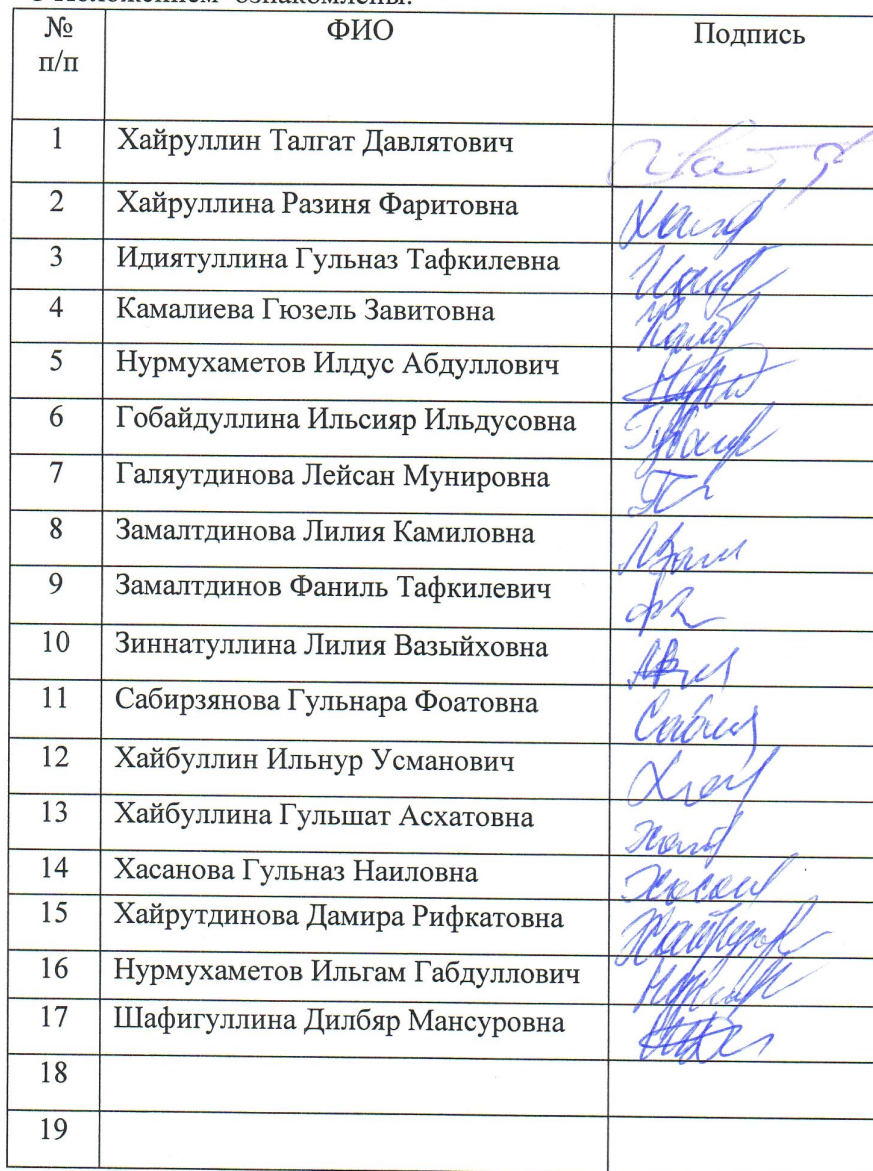 с Положением ознакомлены:
№ п/п ФИО Подпись
1 Хайруллин Талгат Давлятович
2 Хайруллина Разиня Фаритовна
3 Идиятуллина Гульназ Тафкилевна
4 Камалиева Гюзель Завитовна
5 Нурмухаметов Илдус Абдуллович
6 Гобайдуллина Ильсияр Ильдусовна
7 Галяутдинова Лейсан Мунировна
8 Замалтдинова Лилия Камиловна
9 Замалтдинов Фаниль Тафкилевич
10 Зиннатуллина Лилия Вазыйховна
11 Сабирзянова Гульнара Фоатовна
12 Хайбуллин Ильнур Усманович
13 Хайбуллина Гульшат Асхатовна
14 Хасанова Гульназ Наиловна
15 Хайрутдинова Дамира Рифкатовна
16 Нурмухаметов Ильгам Габдуллович
17 Шафигуллина Дилбяр Мансуровна
18
19